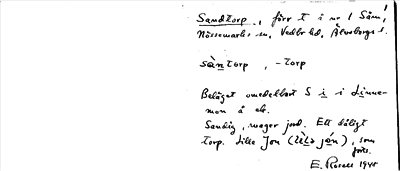 Sandtorp, förr t i nr 1 Såm,
Nössemarks sn, Vedbo hd, Älvsborgs l.
sàntorp, -torp
Beläget omedelbart S i i Linne-
mon å ek.
Sandig, mager jord. Ett dåligt
torp. Lille Jon (lìlə jón), som
forts.
E. Rosell 1945